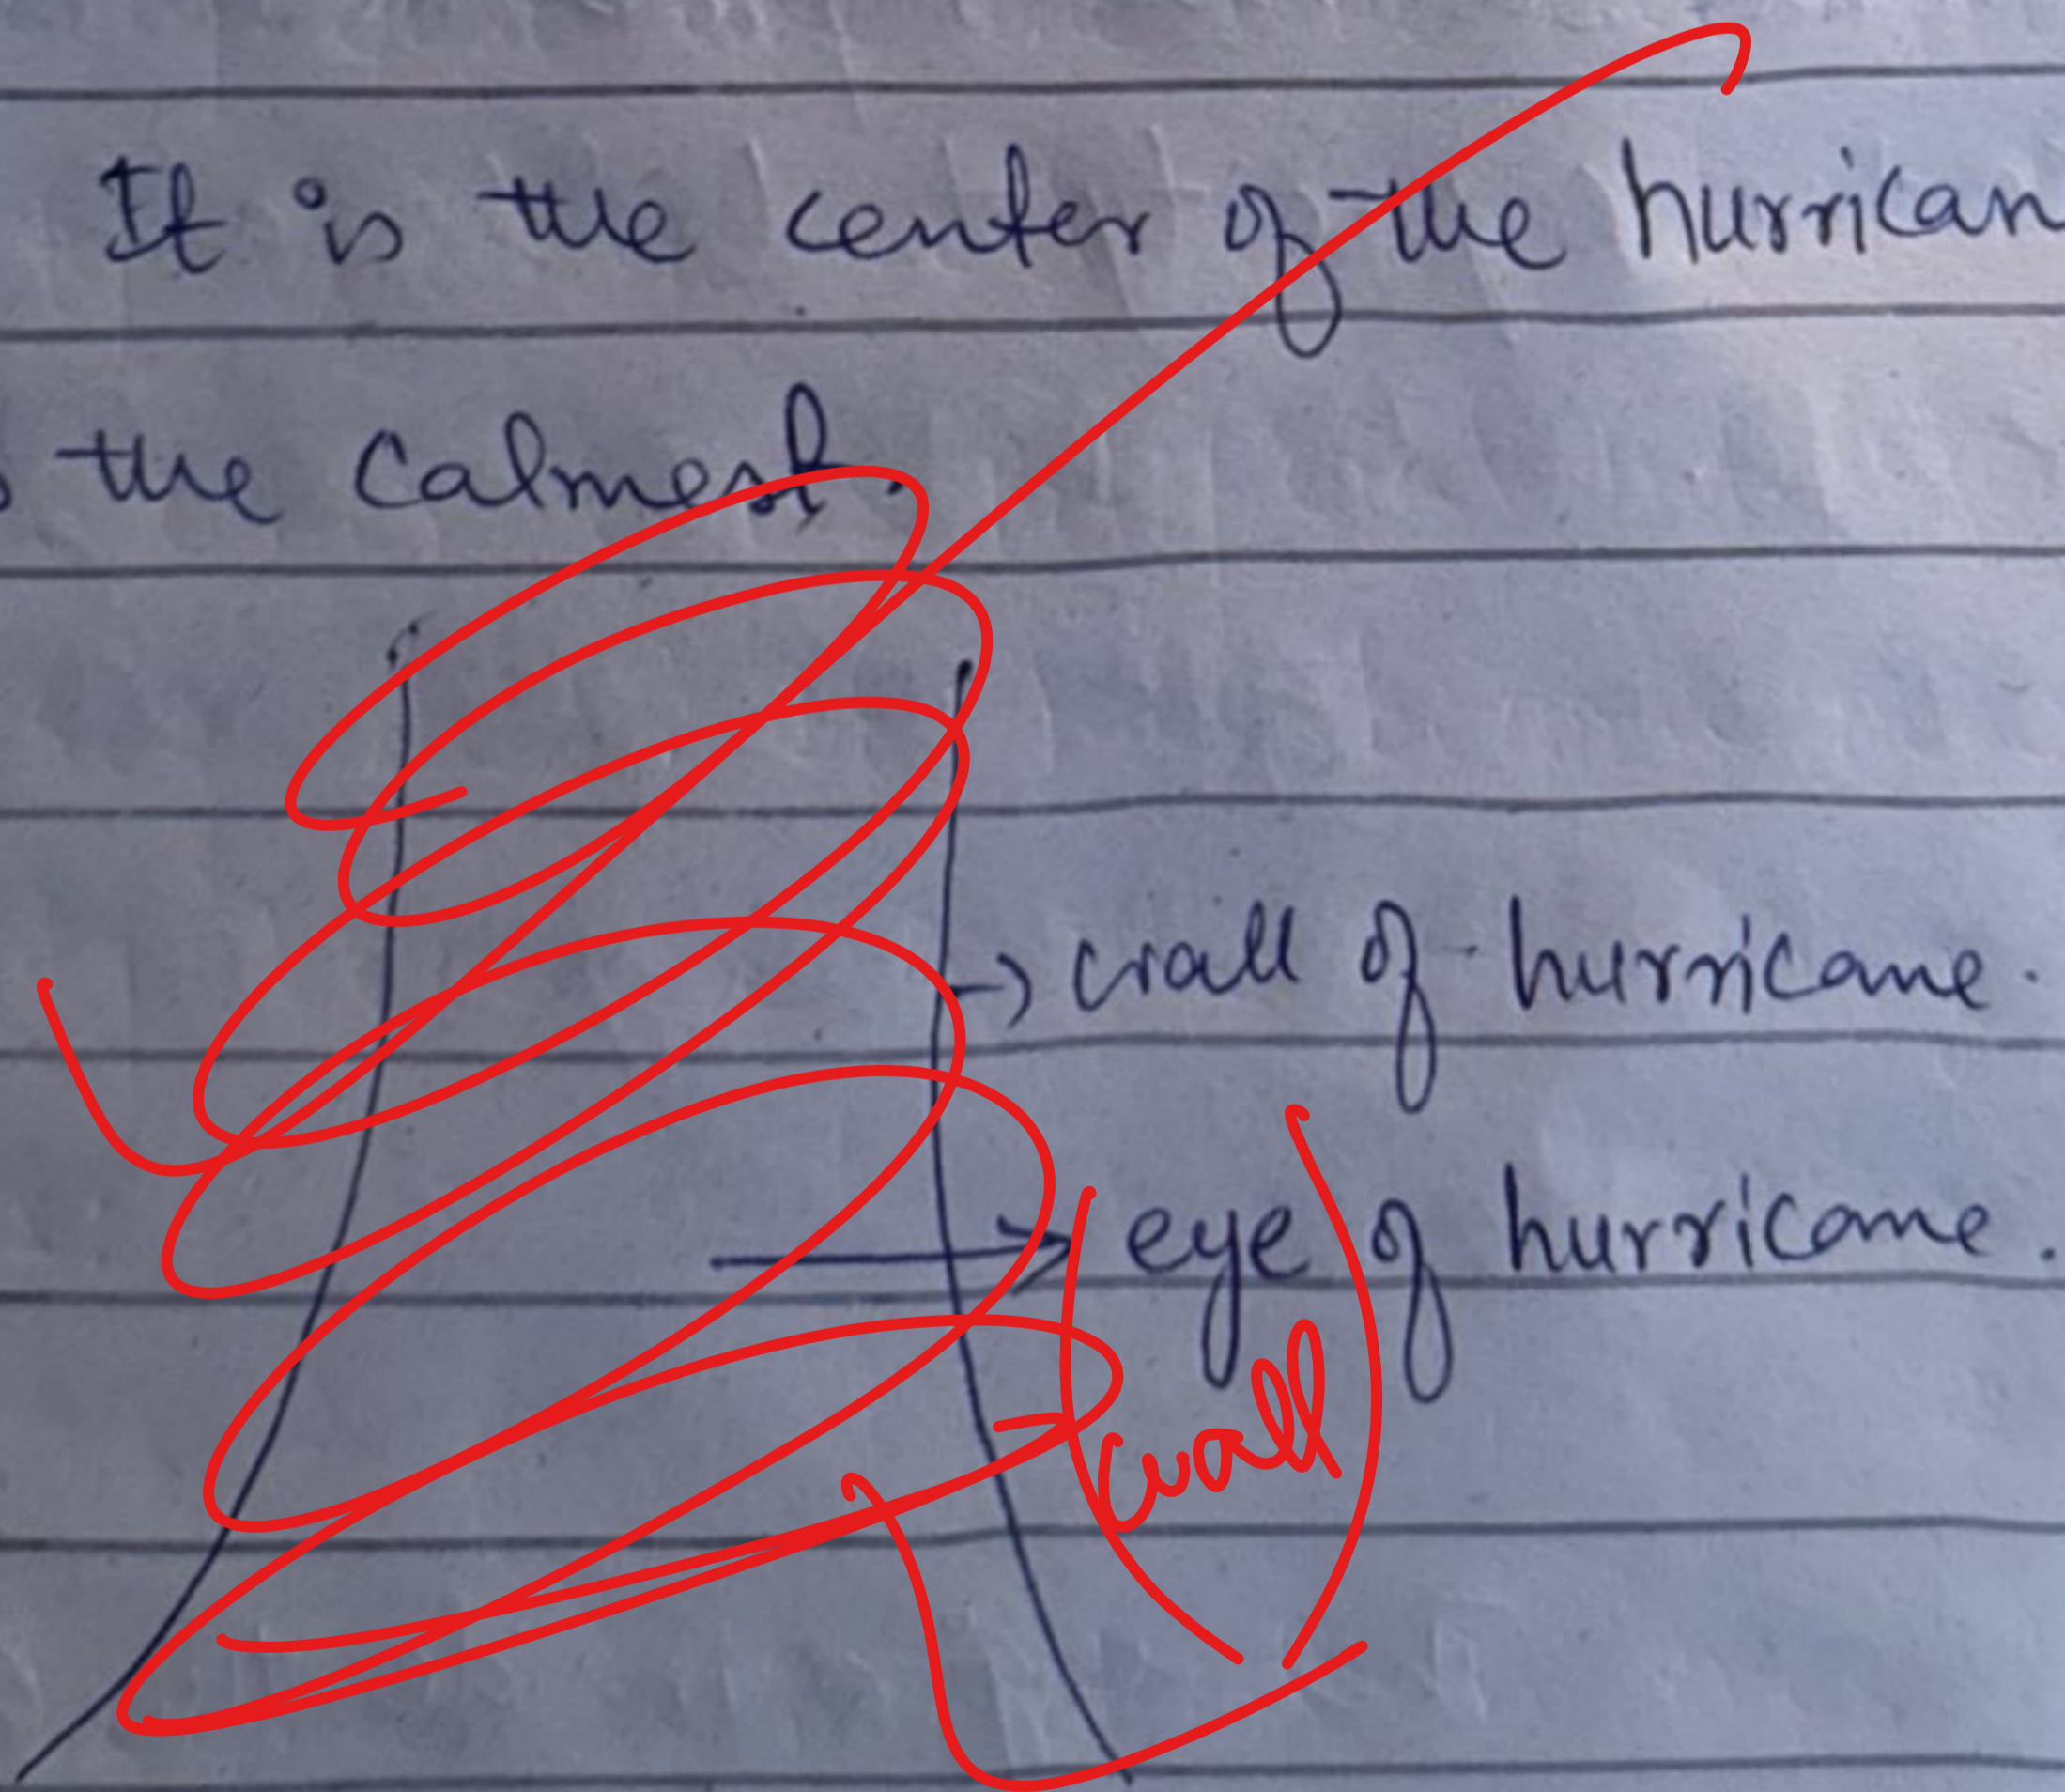 It is the center of the hurrican
the calmest.
wall of hurricane.
eye of hurricane.
wall